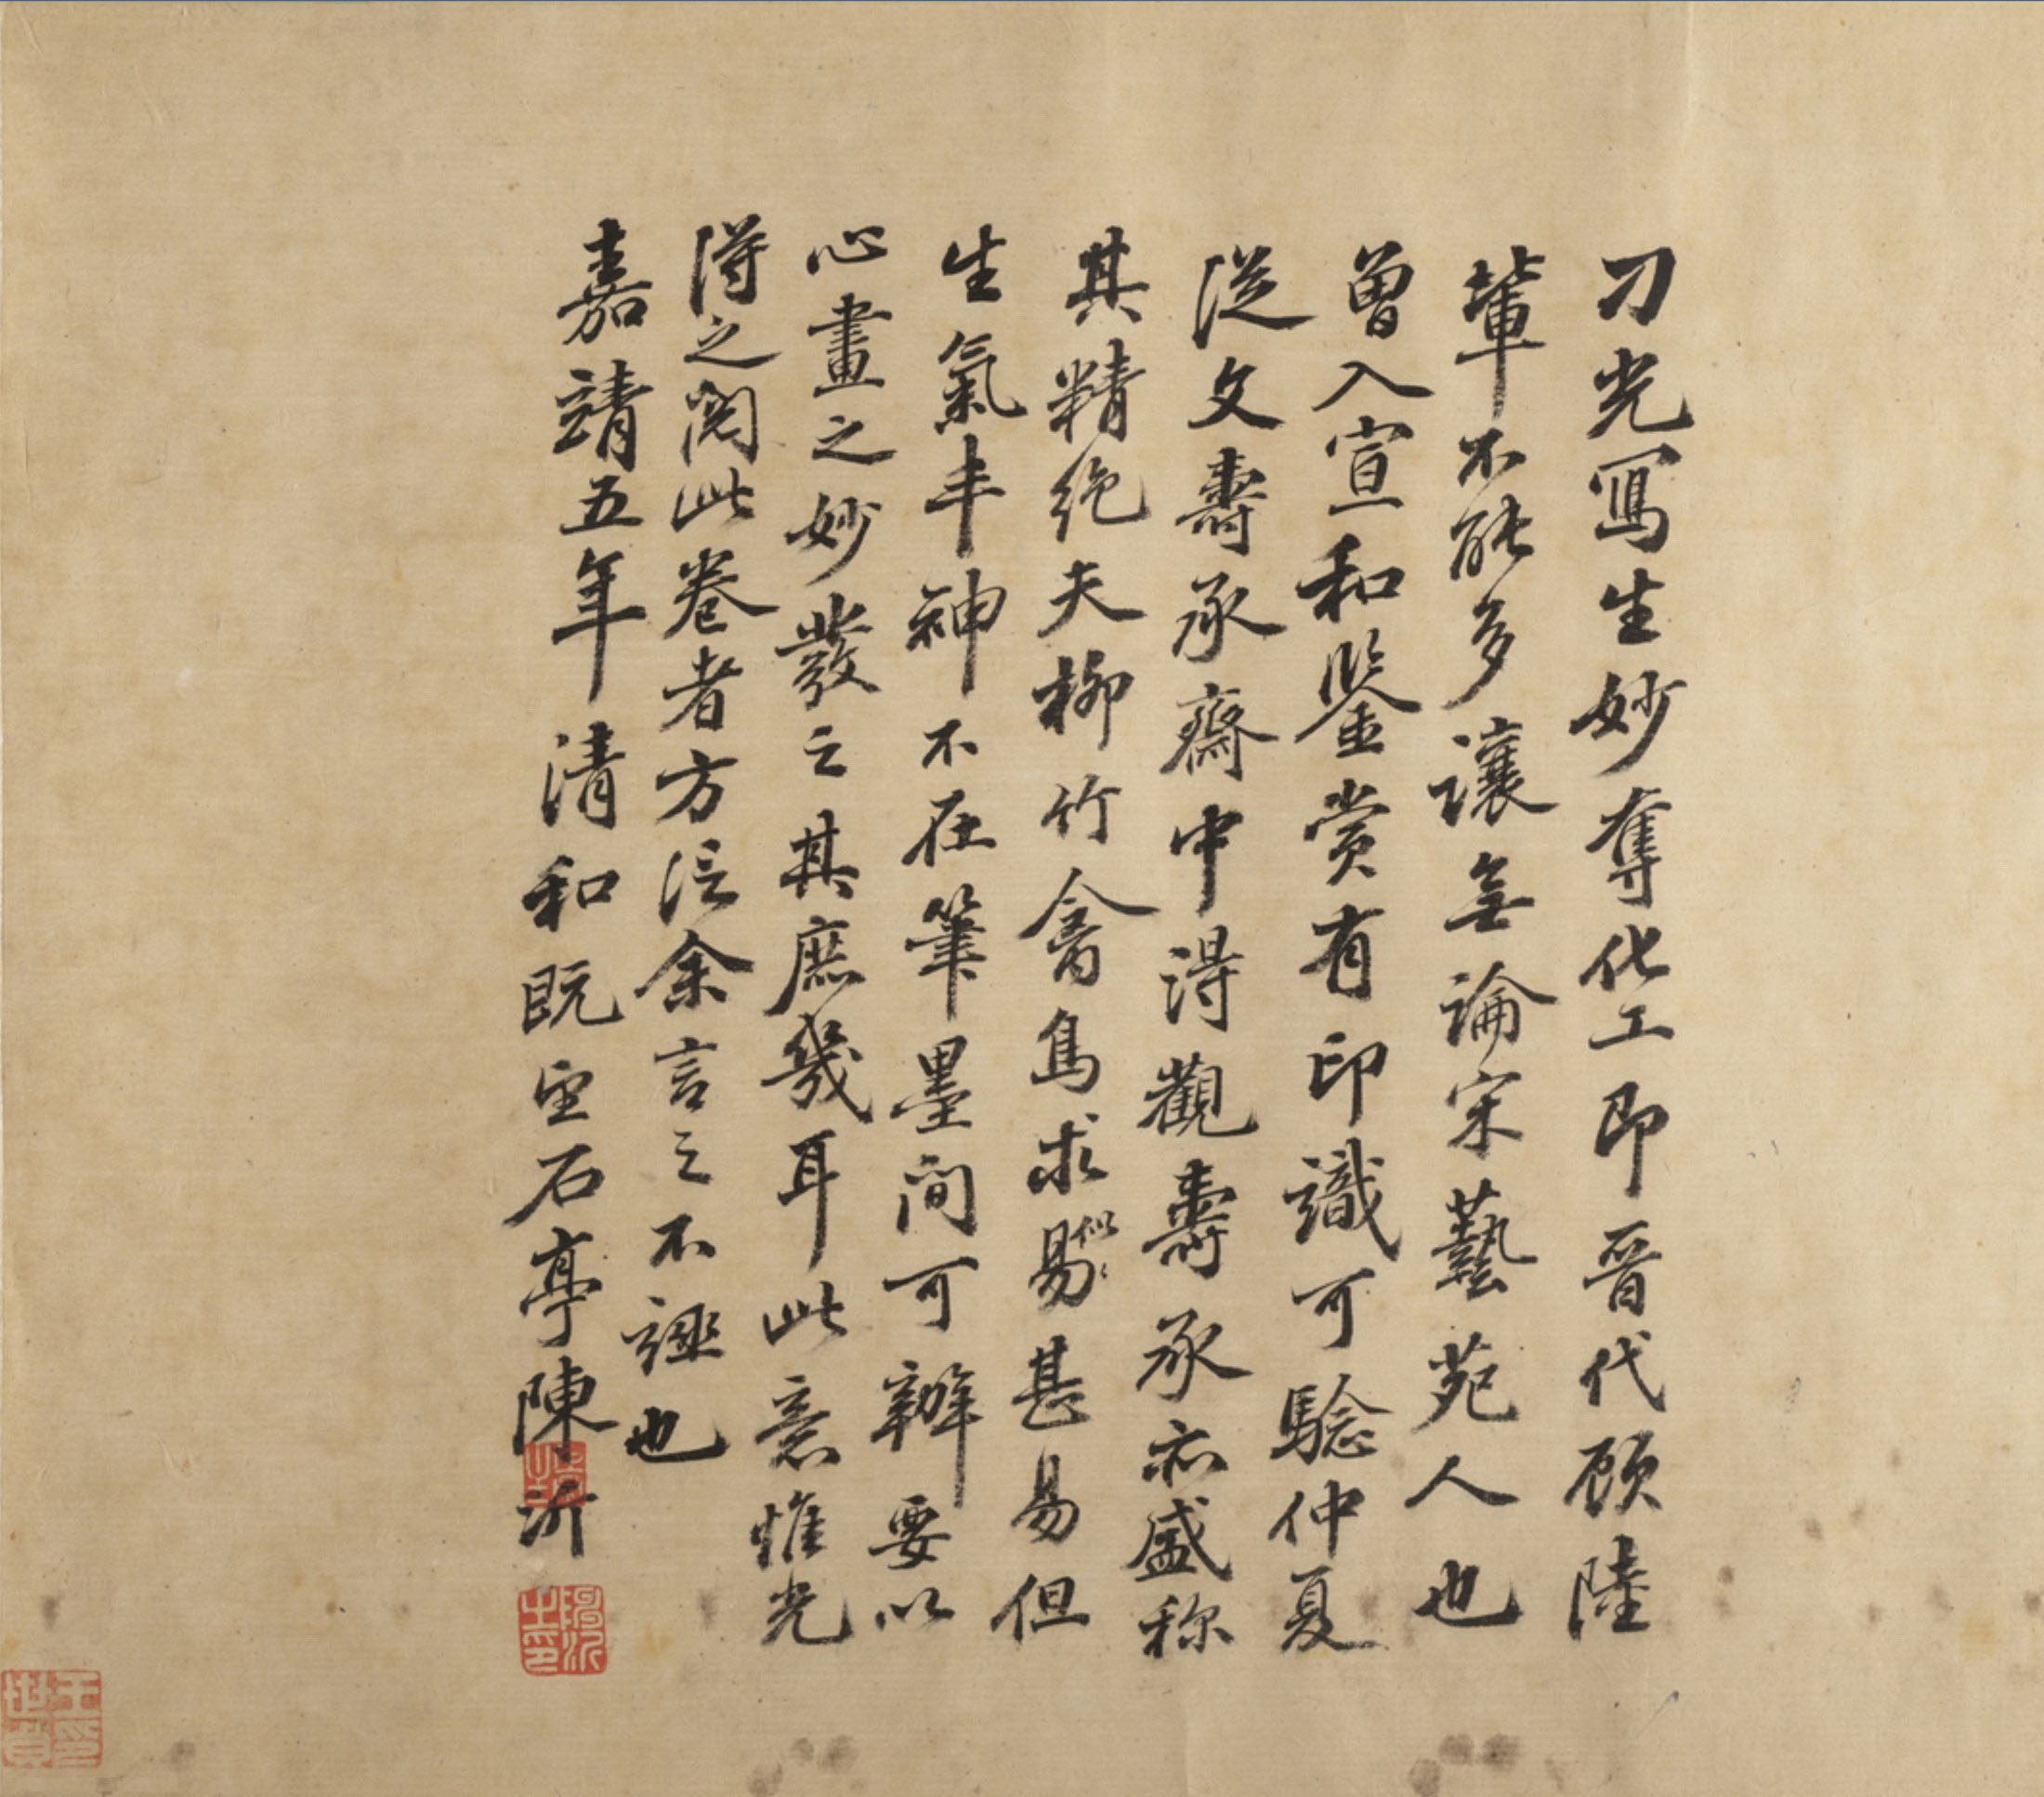 刁光寫生妙奪化工即晉代顧陸
輩不能多讓無論宋藝苑人也
曾入宣和鑒賞有印識可驗仲夏
從文壽承齋中得觀壽承亦盛稱
其精絕夫柳竹禽鳥求易似甚易但
生氣丰神不在筆墨間可辦要以
心畫之妙發之其庶幾耳此意惟光
得之閱此卷者方信余言之不誣也
嘉靖五年清和既望石亭陳沂
陳沂之印
王世貞印